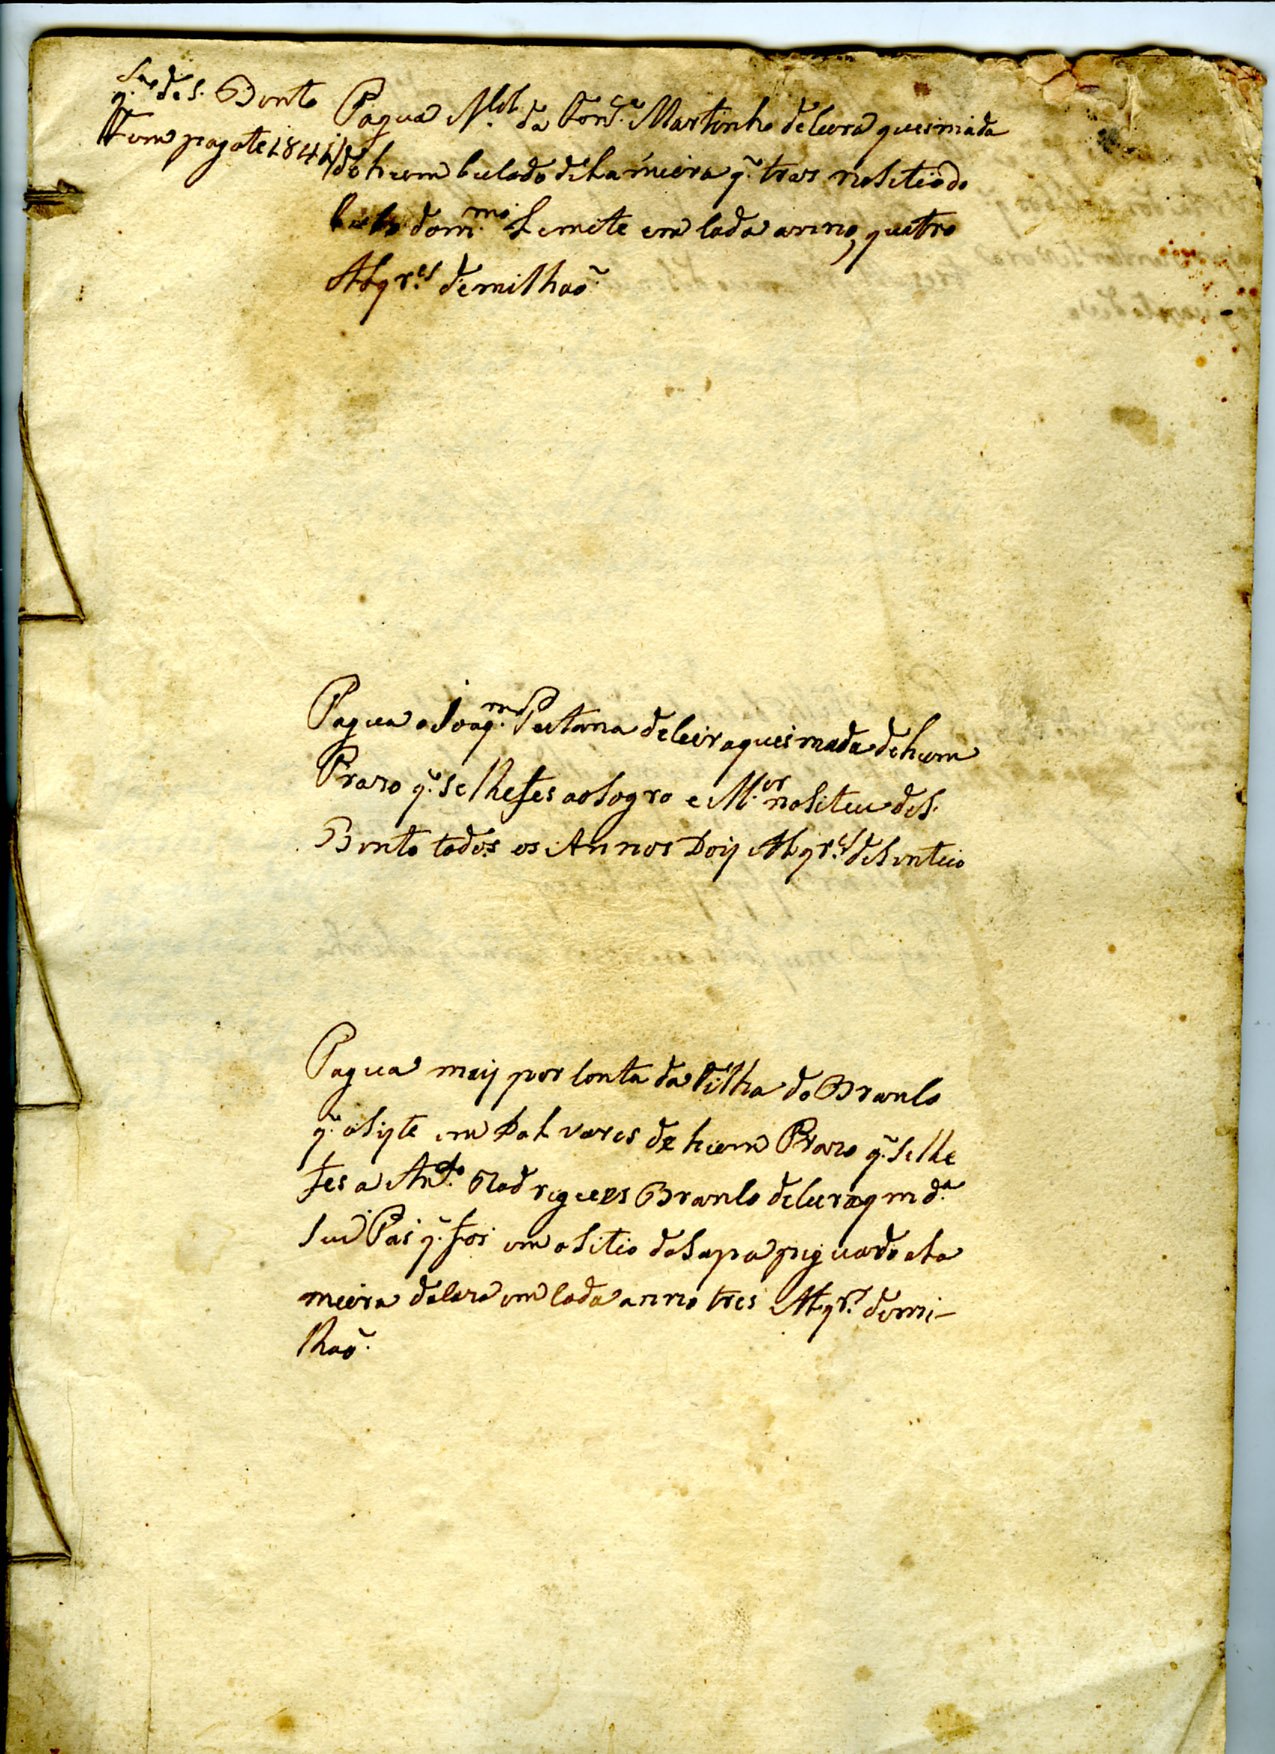 q.^m de S. Bento
Tem pago te 1841
Pagua M.^el da Fon.^ca Martinho de leira queimada
de hum bocado de Lameira q.^e tras no sitio do
do m.^mo Limite em Cada anno, quatro
Alqr.^es de milhaõ
Pagua o Joaq.^m Pestana de leira queimada de hum
Prazo q.^e se lhe fes ao Sogro e M.^er no sitiu de S.
Bento todos os Annos Doij Alqr.^es de Senteio
Pagua maij por Conta da Filha do Branco
q.^e asiste em de hum Prazo q.^e se lhe
fes a Ant.^o Rodrigues Branco de leira qm.^da
seu Pai q.^e foi em o sitio da Lapa piguado a La
meira da lara em Cada anno tres Alqr.^es de mi-
lhaõ.